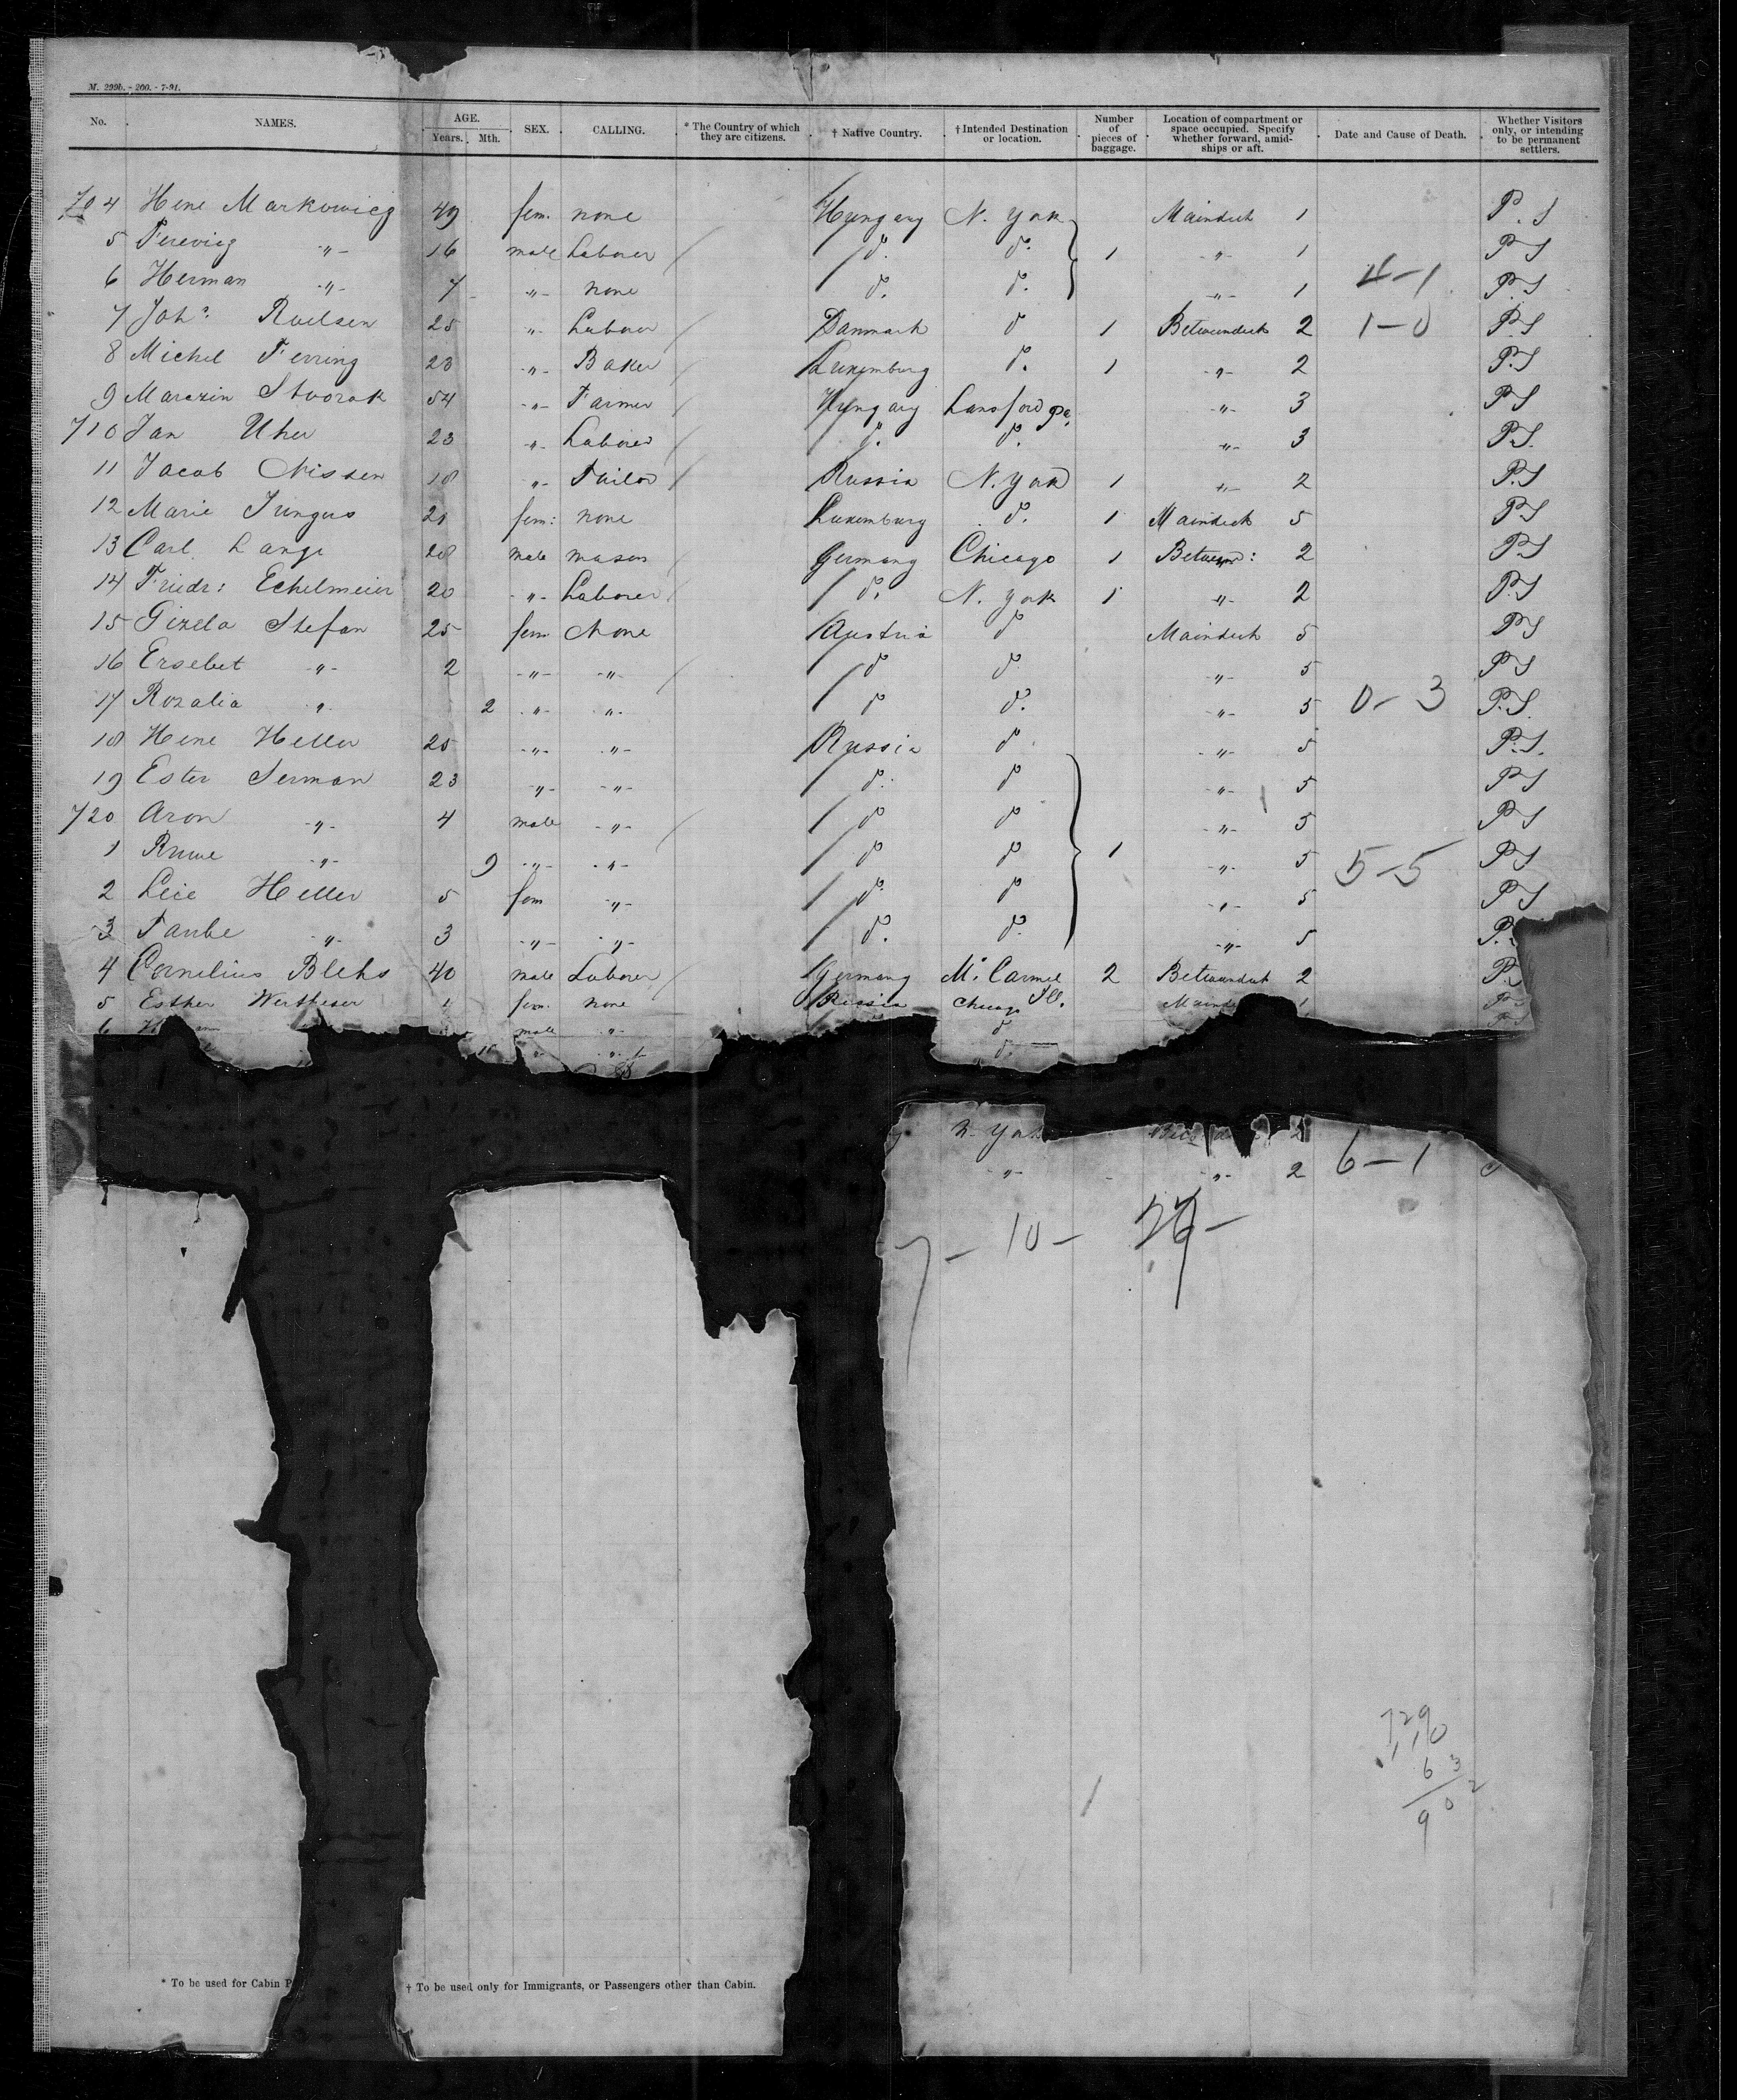 M. 299b. - 200. - 7-91.
No. NAMES. AGE. Years. Mth. SEX. CALLING. * The Country of which they are citizens. † Native Country. † Intended Destination or location. Number of pieces of baggage. Location of compartment or space occupied. Specify whether forward, amidships or aft. Date and Cause of Death. Whether Visitors only, or intending to be permanent settlers.
704 Hene Markowicz 49 fem. none Hungary N. York Maindeck 1 P. S
5 -"- 16 male Laborer / d. d. 1 -"- 1 P S
6 Herman -"- 7 -"- none d. d. -"- 1 4-1 P. S
7 Joh. 25 -"- Laborer / Danmark d 1 Betweendeck 2 1-0 P. S
8 Michel Ferring 23 -"- Baker / Luxemburg d. 1 -"- 2 P. S
9 54 -"- Farmer / Hungary Lansford Pa. -"- 3 P S
710 Jan Uher 23 -"- Laborer / d. d. -"- 3 P. S.
11 Jacob Nissen 18 -"- Tailor / Russia N. York 1 -"- 2 P. S
12 Marie Jungus 21 fem: none Luxemburg d. 1 Maindeck 5 P S
13 Carl Lange 28 male mason / Germany Chicago 1 Between: 2 P. S
14 Friedr: Echelmeier 20 -"- Laborer / d. N. York 1 -"- 2 P. S
15 Gizela Stefan 25 fem None Austria d Maindeck 5 P S
16 Ersebet -"- 2 -"- -"- / d d. -"- 5 P S
17 Rozalia -"- 2 -"- -"- d d. -"- 5 0-3 P. S.
18 Hene Heller 25 -"- -"- Russia d -"- 5 P. S.
19 Ester Serman 23 -"- -"- d. d -"- 5 P S
720 Aron -"- 4 male -"- / d d -"- 5 P S
1 -"- 9 -"- -"- d d 1 -"- 5 5-5 P S
2 Heller 5 fem -"- d d -"- 5 P S
3 Taube -"- 3 -"- -"- d. d. -"- 5 P.
4 Cornelius Blehs 40 male Laborer / Germany Mt. Carmel Ill. 2 Betweendeck 2 P.
5 Esther fem. none Russia Chicago 1 P S
6 male -"- d P S
-"- -"- d.
N. York 2
-"- -"- 2 6-1
7 - 10 -
729
110
63
902
* To be used for Cabin P
† To be used only for Immigrants, or Passengers other than Cabin.